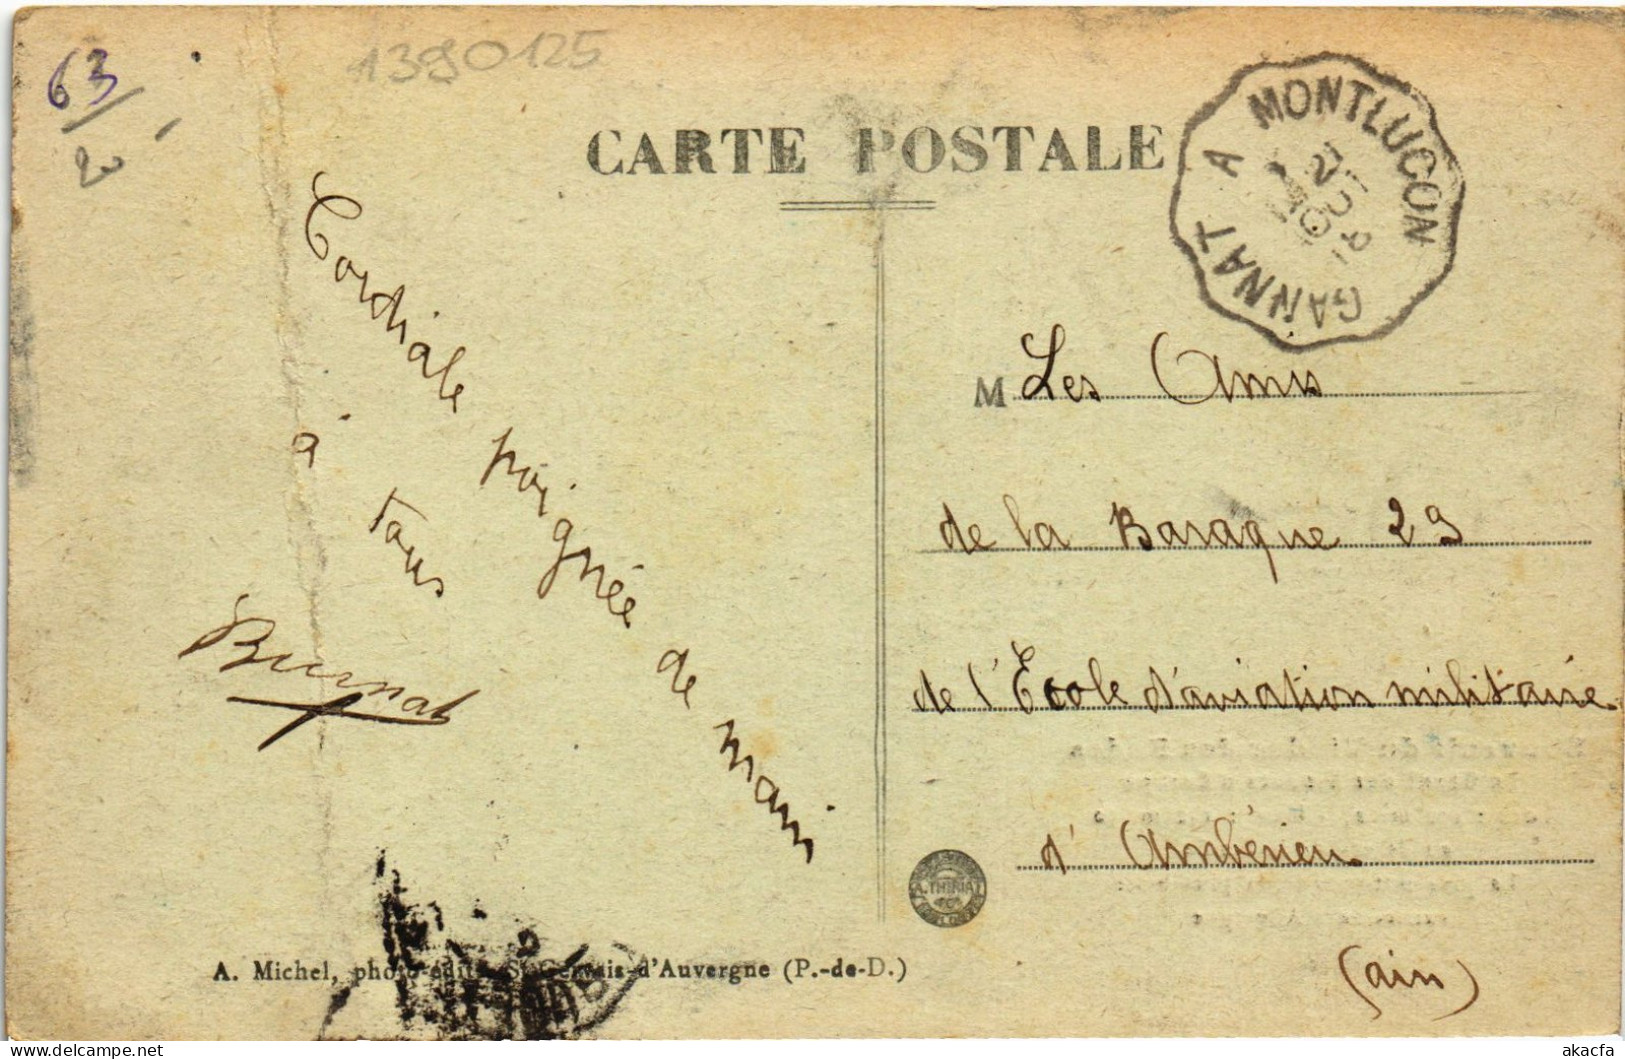 63/2
1390125
CARTE POSTALE
MONTLUCON
GANNAT A
21
Cordiale poignée de main
à tous
Burnat
M Les Amis
de la Baraque 29
de l'École d'aviation militaire
d'Ambérieu
(Ain)
A. THIRIAT
A. Michel, photo-édit. St-Gervais-d'Auvergne (P.-de-D.)
akacfa